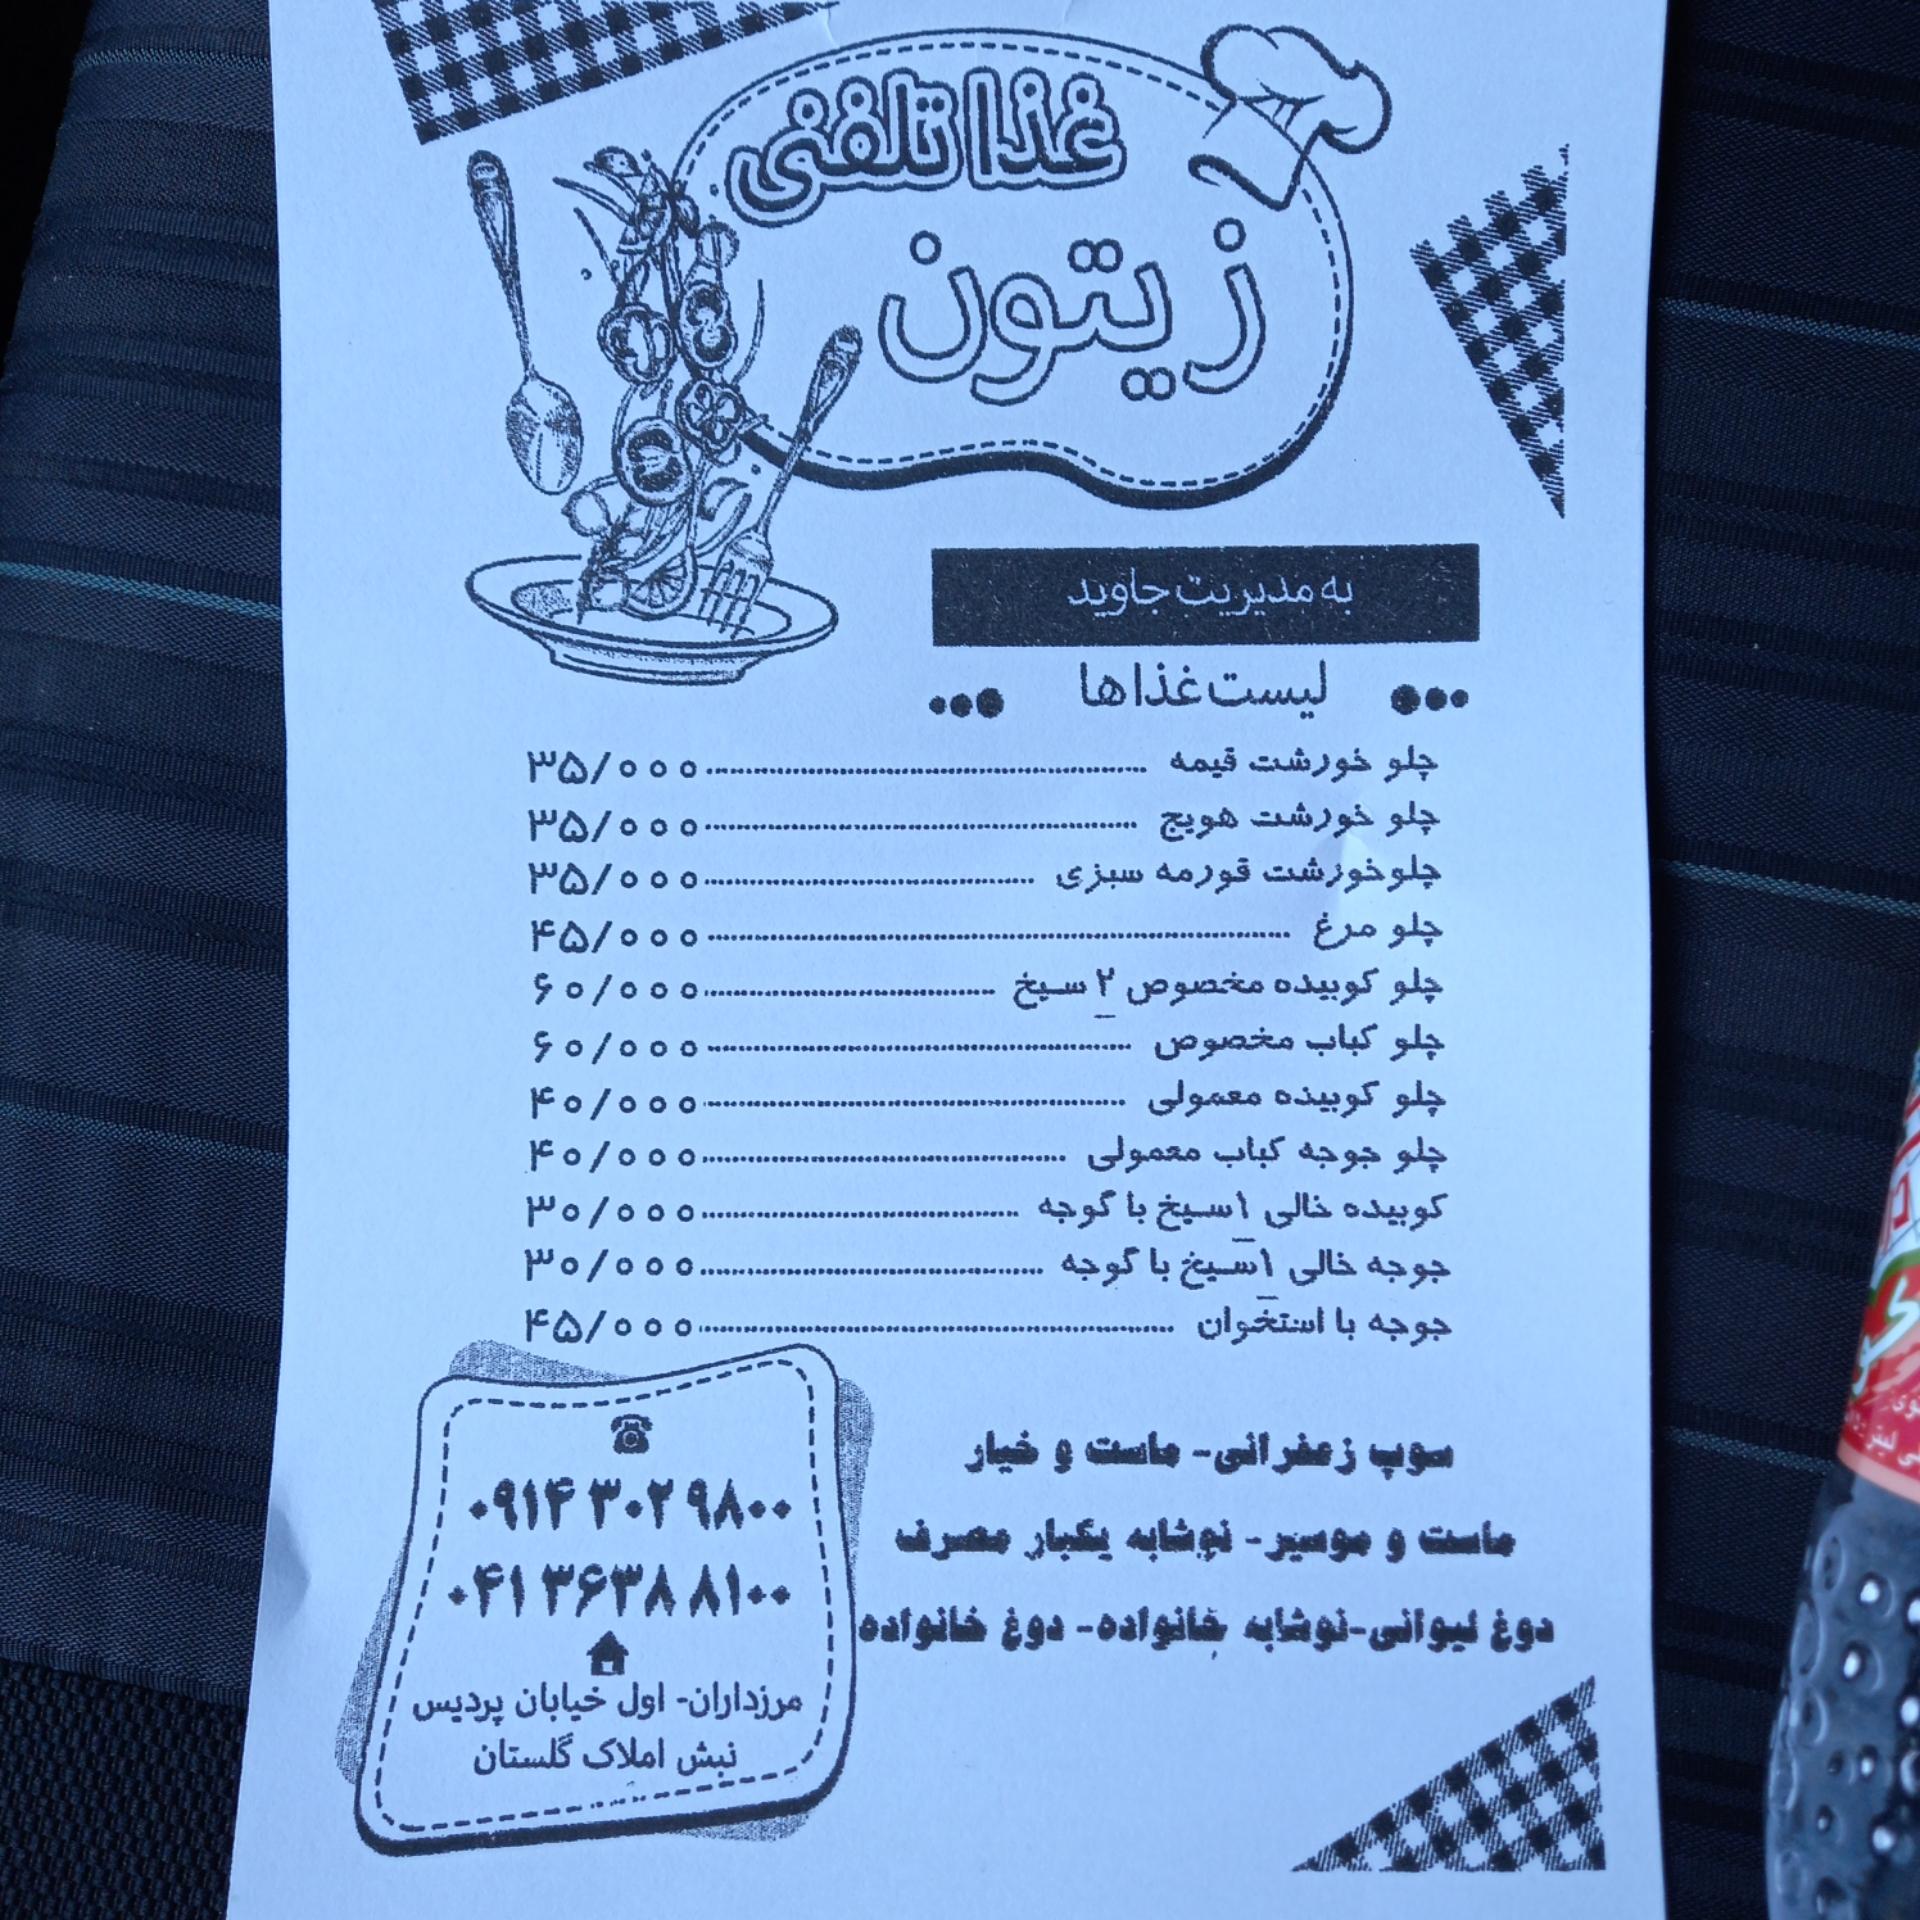 غذا تلفنی
زیتون
به مدیریت جاوید
لیست غذاها
چلو خورشت قیمه ۳۵/۰۰۰
چلو خورشت هویج ۳۵/۰۰۰
چلوخورشت قورمه سبزی ۳۵/۰۰۰
چلو مرغ ۴۵/۰۰۰
چلو کوبیده مخصوص ۲ سیخ ۶۰/۰۰۰
چلو کباب مخصوص ۶۰/۰۰۰
چلو کوبیده معمولی ۴۰/۰۰۰
چلو جوجه کباب معمولی ۴۰/۰۰۰
کوبیده خالی ۱سیخ با گوجه ۳۰/۰۰۰
جوجه خالی ۱سیخ با گوجه ۳۰/۰۰۰
جوجه با استخوان ۴۵/۰۰۰
سوپ زعفرانی- ماست و خیار
ماست و موسیر- نوشابه یکبار مصرف
دوغ لیوانی-نوشابه خانواده- دوغ خانواده
۰۹۱۴ ۳۰۲ ۹۸۰۰
۰۴۱ ۳۶۳۸ ۸۱۰۰
مرزداران- اول خیابان پردیس
نبش املاک گلستان